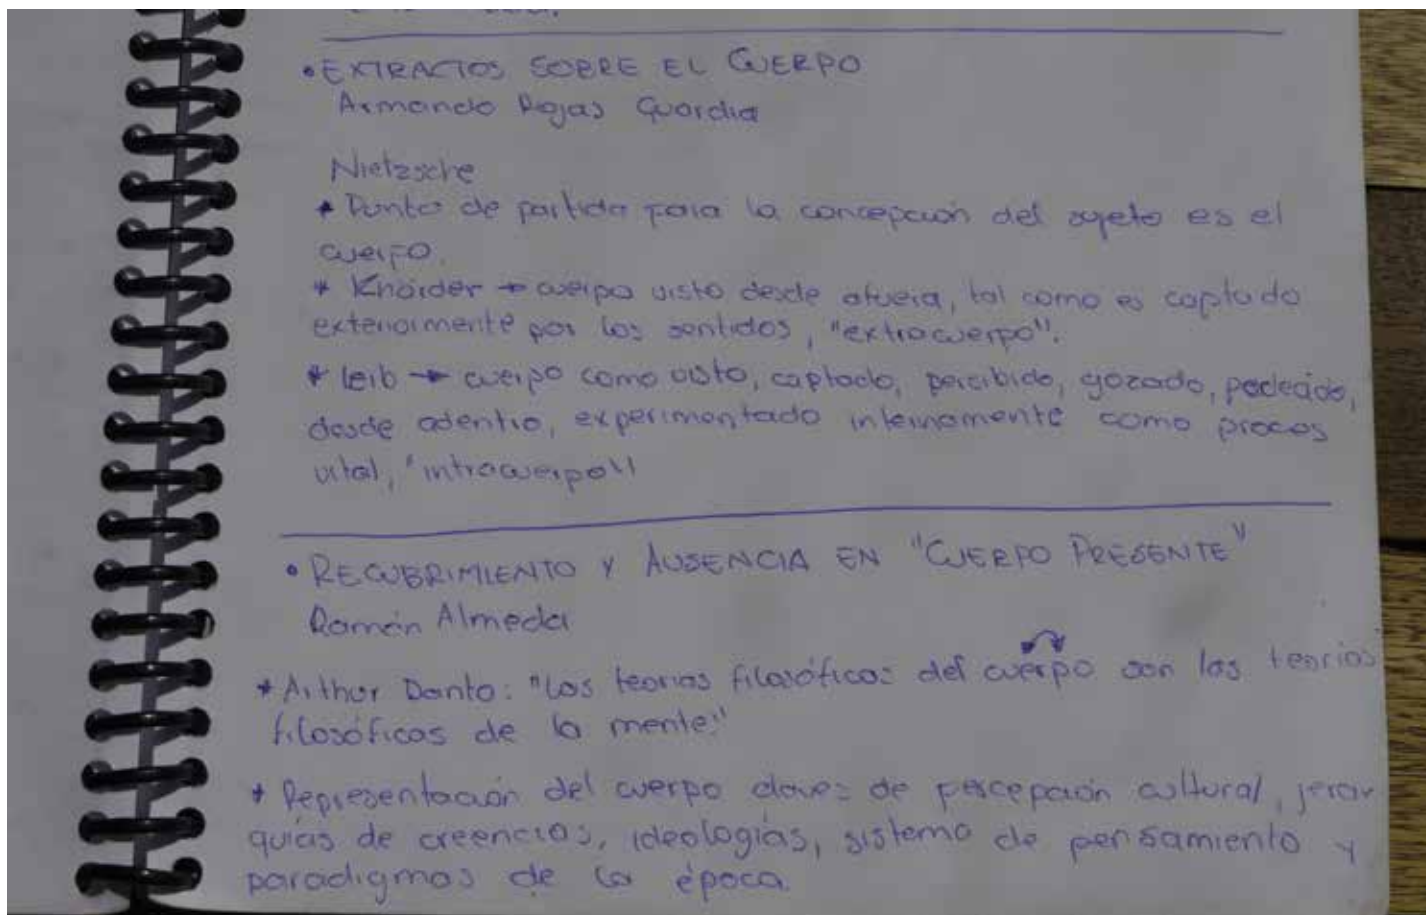 • EXTRACTOS SOBRE EL CUERPO
Armando Rojas Guardia
Nietzsche
* Punto de partida para la concepción del sujeto es el
cuerpo.
* Knörder → cuerpo visto desde afuera, tal como es captado
exteriormente por los sentidos, "extracuerpo".
* Leib → cuerpo como visto, captado, percibido, gozado, padecido,
desde adentro, experimentado internamente como proces
vital, "intracuerpo"
• RECUBRIMIENTO Y AUSENCIA EN "CUERPO PRESENTE"
Ramón Almeda
* Arthur Danto: "Las teorías filosóficas del cuerpo son las teorías
filosóficas de la mente."
* Representación del cuerpo claves de percepción cultural, jerar
quías de creencias, ideologías, sistema de pensamiento y
paradigmas de la época.